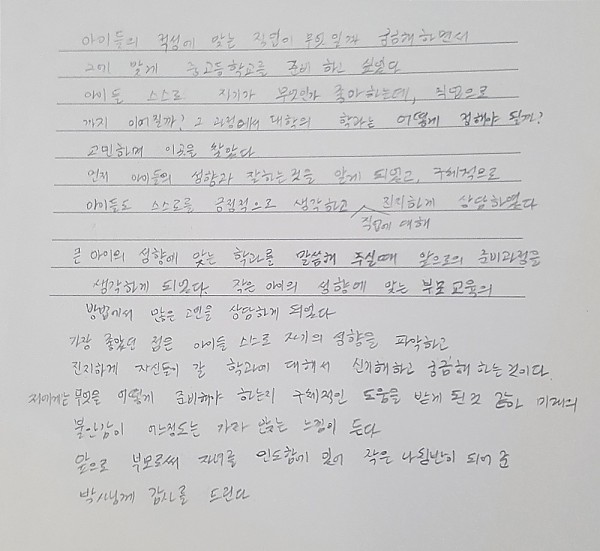 아이들의 적성에 맞는 직업이 무엇일까 궁금해하면서
그에 맞게 중고등학교를 준비 하고 싶었다
아이들 스스로 자기가 무엇인가 좋아하는데, 직업으로
까지 이어질까? 그 과정에서 대학의 학과는 어떻게 정해야 될까?
고민하며 이곳을 찾았다
먼저 아이들의 성향과 잘하는것을 알게 되었고, 구체적으로
아이들도 스스로를 긍정적으로 생각하고 진지하게 상담하였다
직업에 대해
큰 아이의 성향에 맞는 학과를 말씀해 주실때 앞으로의 준비과정을
생각하게 되었다. 작은 아이의 성향에 맞는 부모교육의
방법에서 많은 고민을 상담하게 되었다
가장 좋았던 점은 아이들 스스로 자기의 성향을 파악하고
진지하게 자신들이 갈 학과에 대해서 신기해하고 궁금해 하는것이다.
저에게는 무엇을 어떻게 준비해야 하는지 구체적인 도움을 받게 된것 미래의
불안감이 어느정도는 가라 앉는 느낌이 든다
앞으로 부모로써 자녀를 인도함에 있어 작은 나침반이 되어 준
박사님께 감사를 드린다